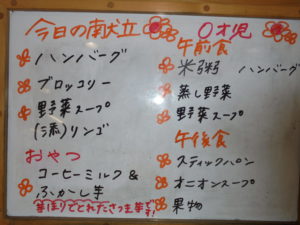 今日の献立
ハンバーグ
ブロッコリー
野菜スープ
(添)リンゴ
おやつ
コーヒーミルク&
ふかし芋
芋ほりでとれたさつま芋です!
0才児
午前食
米粥 ハンバーグ
蒸し野菜
野菜スープ
午後食
スティックパン
オニオンスープ
果物